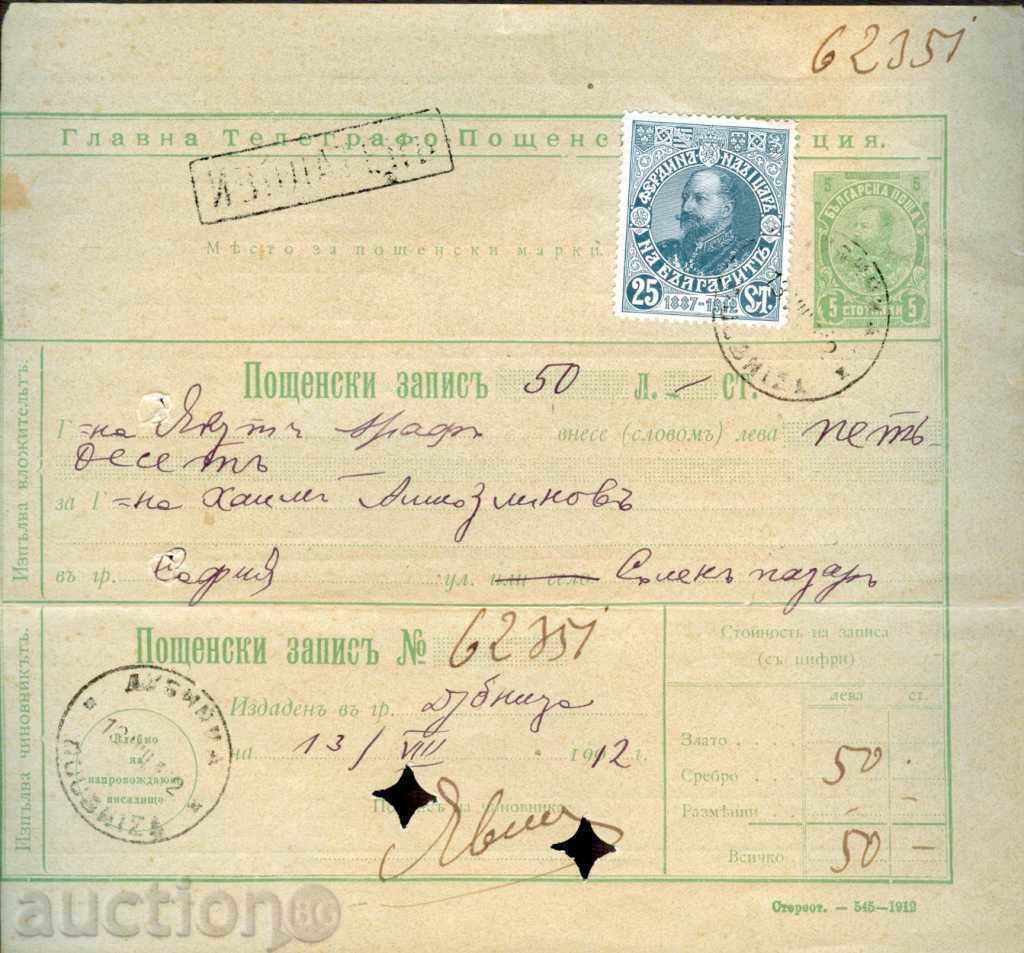 62351
Главна Телеграфо-Пощенс ция.
ИЗПЛАТЕНЪ
Мѣсто за пощенски марки.
ФЕРДИНАНДЪ I ЦАРЬ
НА БЪЛГАРИТѢ
25 1887-1912 СТ.
5 БЪЛГАРСКА ПОЩА 5
5 СТОТИНКИ 5
Изпълва вложительтъ.
Пощенски записъ 50 л. - ст.
Г-на внесе (словомъ) лева петь
десеть
за Г-на Хаимъ
въ гр. София ул. или село Соленъ пазаръ
Изпълва чиновникътъ.
Пощенски записъ № 62351
Издаденъ въ гр. Дубница
на 13/VIII 1912 г.
Подпис на чиновника
ДУБНИЦА
DOUBNIZA
Клеймо
на
напровождающ
писалище
Стойность на записа
(съ цифри)
лева ст.
Злато
Сребро 50 -
Размѣнни - -
Всичко 50 -
Стереот. — 545—1912
auction BG